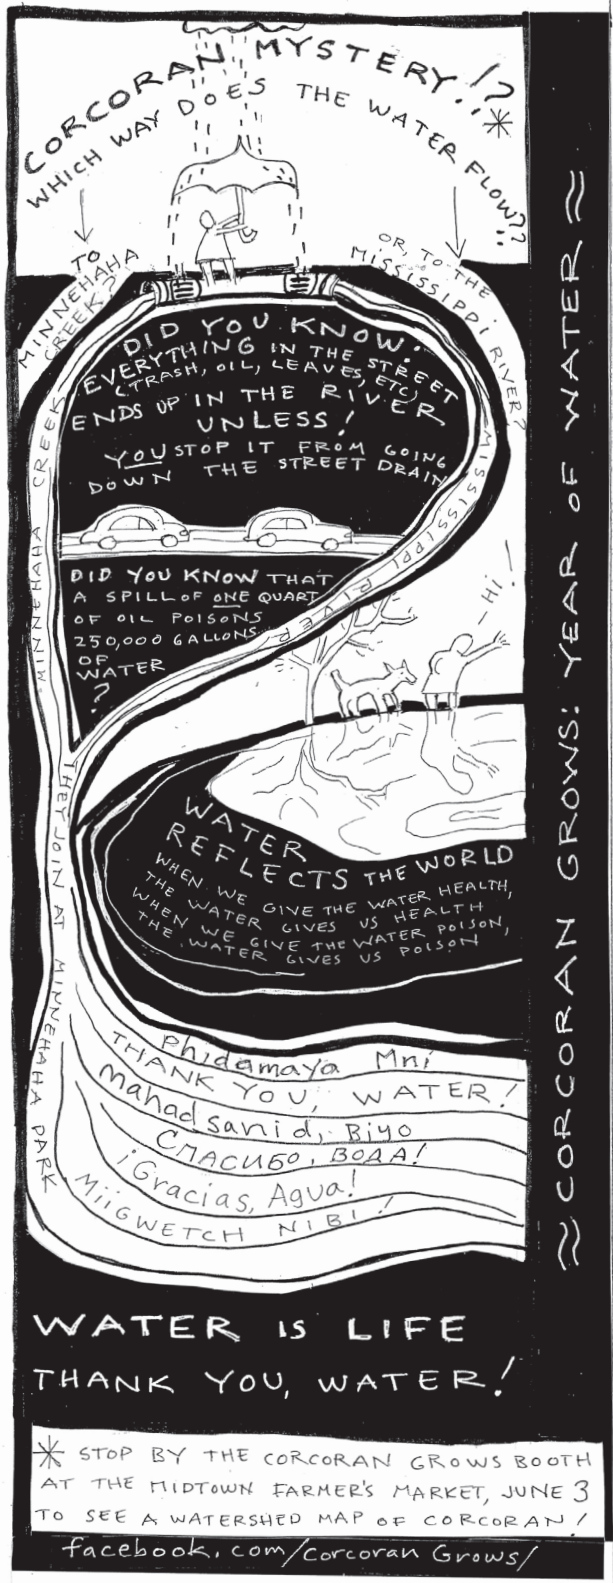 CORCORAN MYSTERY!?*
WHICH WAY DOES THE WATER FLOW??
TO
MINNEHAHA
CREEK?
OR, TO THE
MISSISSIPPI RIVER?
DID YOU KNOW:
EVERYTHING IN THE STREET
(TRASH, OIL, LEAVES, ETC)
ENDS UP IN THE RIVER
UNLESS!
YOU STOP IT FROM GOING
DOWN THE STREET DRAIN
MINNEHAHA CREEK
MINNEHAHA
MISSISSIPPI RIVER
RIVER
DID YOU KNOW THAT
A SPILL OF ONE QUART
OF OIL POISONS
250,000 GALLONS
OF
WATER
?
- Hi!
THEY JOIN AT MINNEHAHA PARK
WATER
REFLECTS THE WORLD
WHEN WE GIVE THE WATER HEALTH,
THE WATER GIVES US HEALTH
WHEN WE GIVE THE WATER POISON,
THE WATER GIVES US POISON
Phidamaya Mni
THANK YOU, WATER!
mahad sanid, Biyo
СПАСИБО, ВОДА!
¡Gracias, Agua!
MIIGWETCH NIBI!
WATER IS LIFE
THANK YOU, WATER!
* STOP BY THE CORCORAN GROWS BOOTH
AT THE MIDTOWN FARMER'S MARKET, JUNE 3
TO SEE A WATERSHED MAP OF CORCORAN!
facebook.com/corcoran Grows/
≈ CORCORAN GROWS: YEAR OF WATER ≈